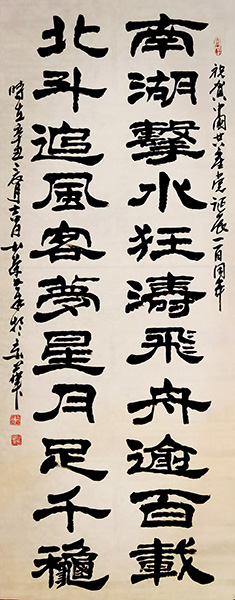 祝賀中國共產黨誕辰一百周年
南湖擊水狂濤飛舟逾百載
北斗追風客夢星月足千穐
時在辛丑月吉日於京華